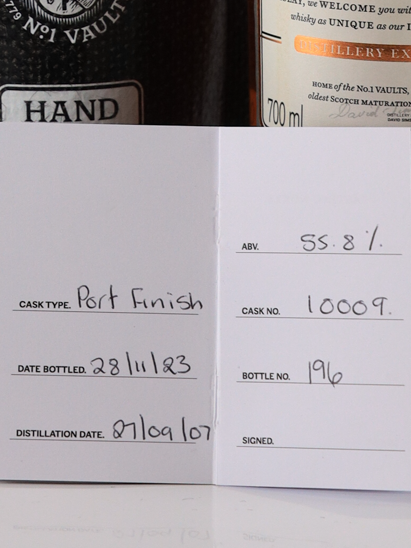 1779
No1 VAULT
HAND
we WELCOME you wit
whisky as UNIQUE as our
DISTILLERY EX
HOME of the No.1 VAULTS,
oldest SCOTCH MATURATION
700 ml
CASK TYPE. Port Finish
DATE BOTTLED. 28/11/23
DISTILLATION DATE. 27/09/07
ABV. 55.8%.
CASK NO. 10009.
BOTTLE NO. 196
SIGNED.